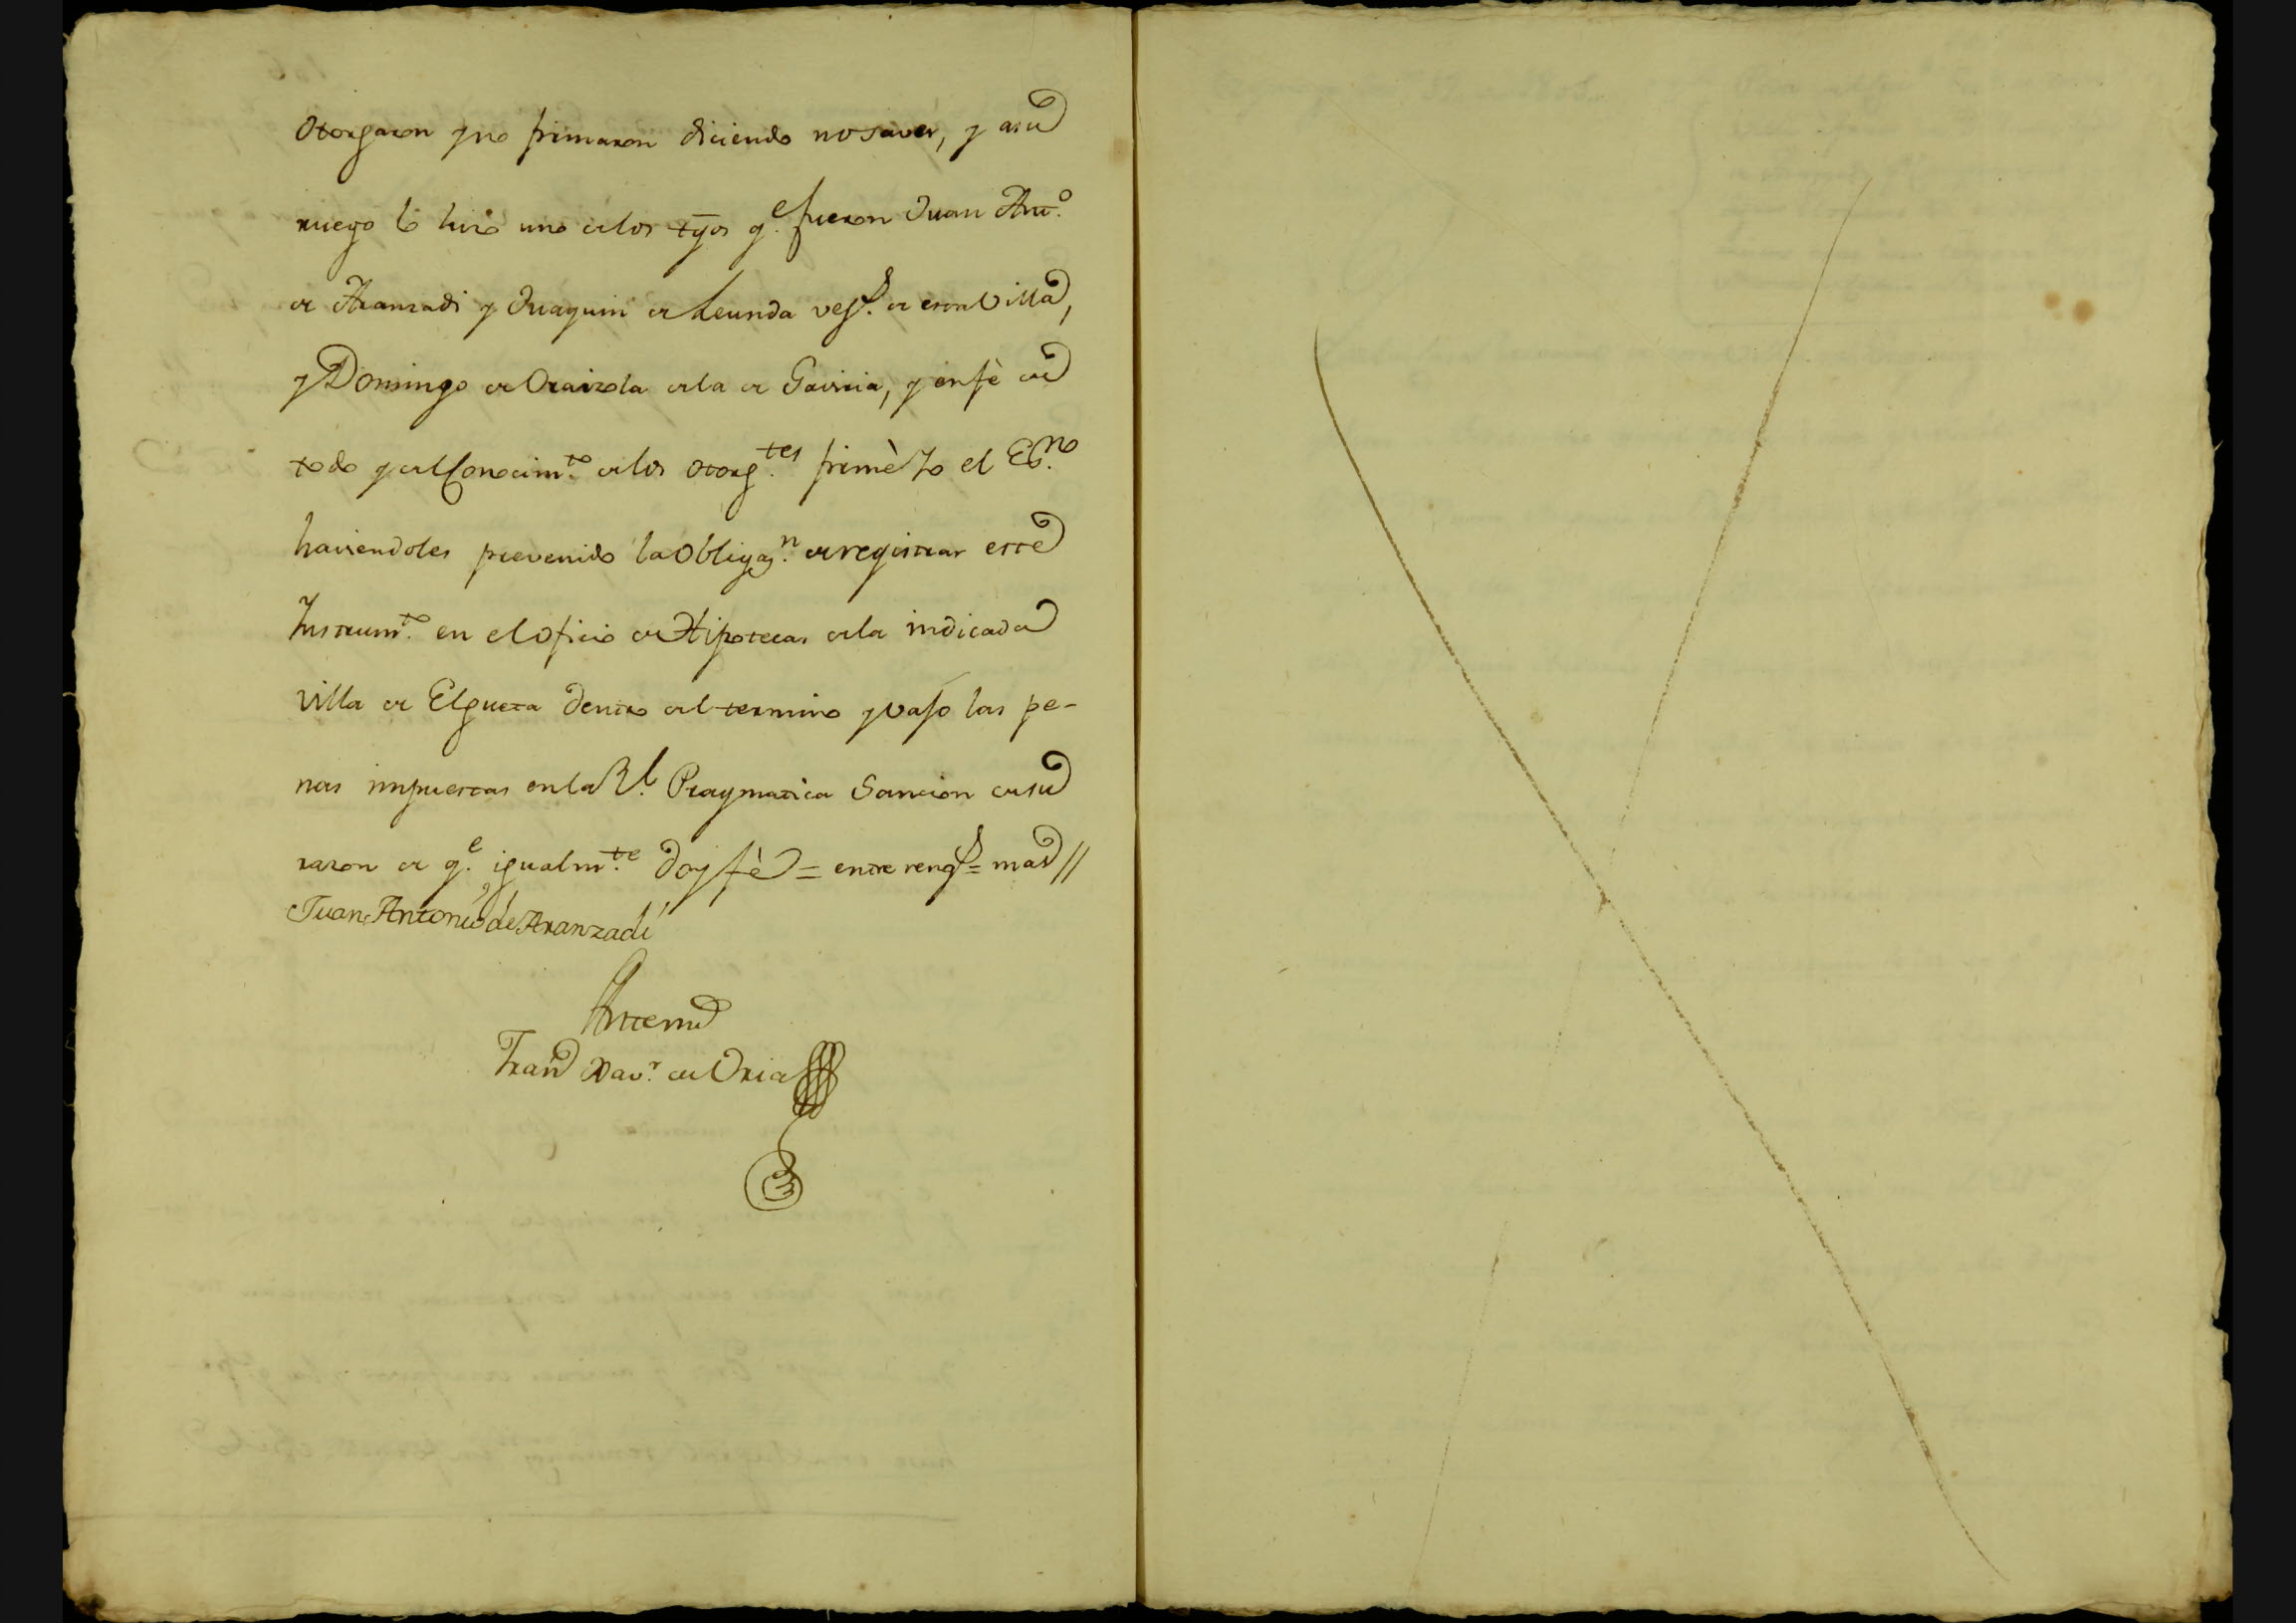 otorgaron y no firmaron diciendo no saver, y a su
ruego lo hizo uno de los tgos q.e fueron Juan Ant.o
de Aranzadi y Juaquin de Leunda vez.s de esta Villa,
y Domingo de Oraizola de la de Gaviria, y en fè de
todo y del Conocim.to de los otorg.tes firmè Yo el Es.no
haviendoles prevenido la Obligaz.n de registrar este
Instrum.to en el oficio de Hipotecas de la indicada
villa de Elgueta dentro del termino y vajo las pe-
nas impuestas en la R.l Pragmatica Sancion de su
razon de q.e igualm.te doy fè = entre reng.s = mas //
Juan Antonio de Aranzadi
Ante mi
Fran.co Xav.r de Oria